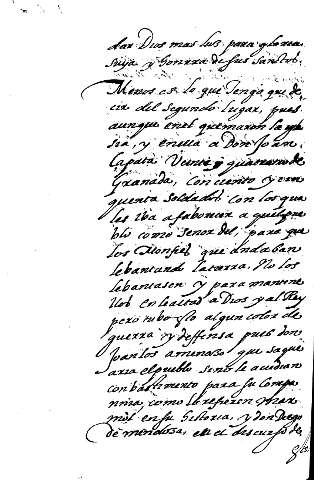 dar Dios mas luz para gloria
suya y honrra de sus sanctos.
Menos es lo que tengo que de
cir del segundo lugar, pues
aunque en el quemaron la igle
sia, y en ella a Don Joan
Çapata Veinte y quatro de
Granada, con ciento y cin
quenta soldados con los qua
les iba a faborecer a quel pue
blo como señor del, para que
los Monfies que andaban
lebantando la tierra. No los
lebantasen y para mantene
llos en lealtad a Dios y al Rey
pero tubo esto algun color de
guerra y deffensa pues don
Joan los amenazo que saque
aria el pueblo si no le acudian
con bastimento para su compa
ñia, como lo refieren Mar
mol en su historia, y don Diego
de mendoza, en el discurso de